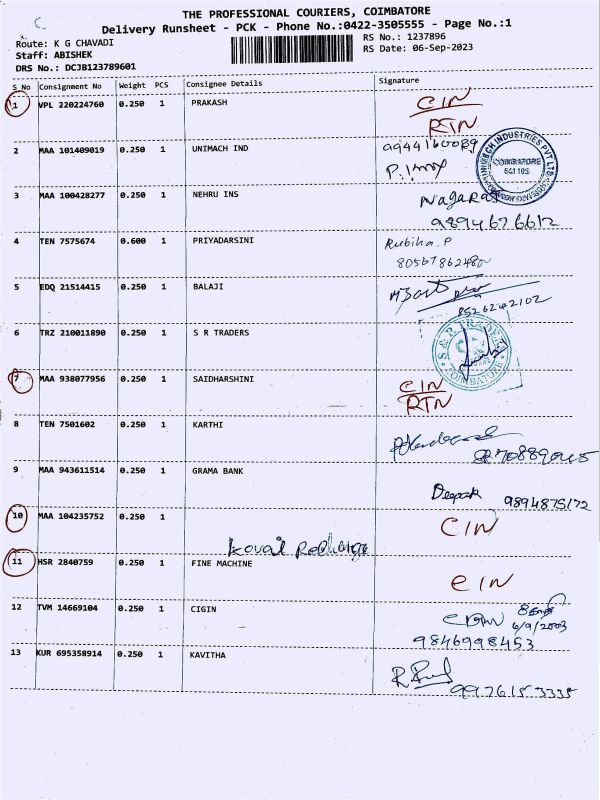 THE PROFESSIONAL COURIERS, COIMBATORE
Delivery Runsheet - PCK - Phone No.:0422-3505555 - Page No.:1
Route: K G CHAVADI
RS No.: 1237896
Staff: ABISHEK
RS Date: 06-Sep-2023
DRS No.: DCJB123789601
S No Consignment No Weight PCS Consignee Details Signature
1 VPL 220224760 0.250 1 PRAKASH CIN
RTN
2 MAA 101409019 0.250 1 UNIMACH IND
COIMBATORE
641 105
3 MAA 100428277 0.250 1 NEHRU INS Nagaraj
9894676612
4 TEN 7575674 0.600 1 PRIYADARSINI Rubika. P
80567862480
5 EDQ 21514415 0.250 1 BALAJI
8526242102
6 TRZ 210011890 0.250 1 S R TRADERS
S & R TRADERS
COIMBATORE
7 MAA 938077956 0.250 1 SAIDHARSHINI CIN
RTN
8 TEN 7501602 0.250 1 KARTHI
9 MAA 943611514 0.250 1 GRAMA BANK
Deepak 9894875172
10 MAA 104235752 0.250 1 CIN
Kovai
11 HSR 2840759 0.250 1 FINE MACHINE CIN
12 TVM 14669104 0.250 1 CIGIN
9846998453
13 KUR 695358914 0.250 1 KAVITHA
9976153335